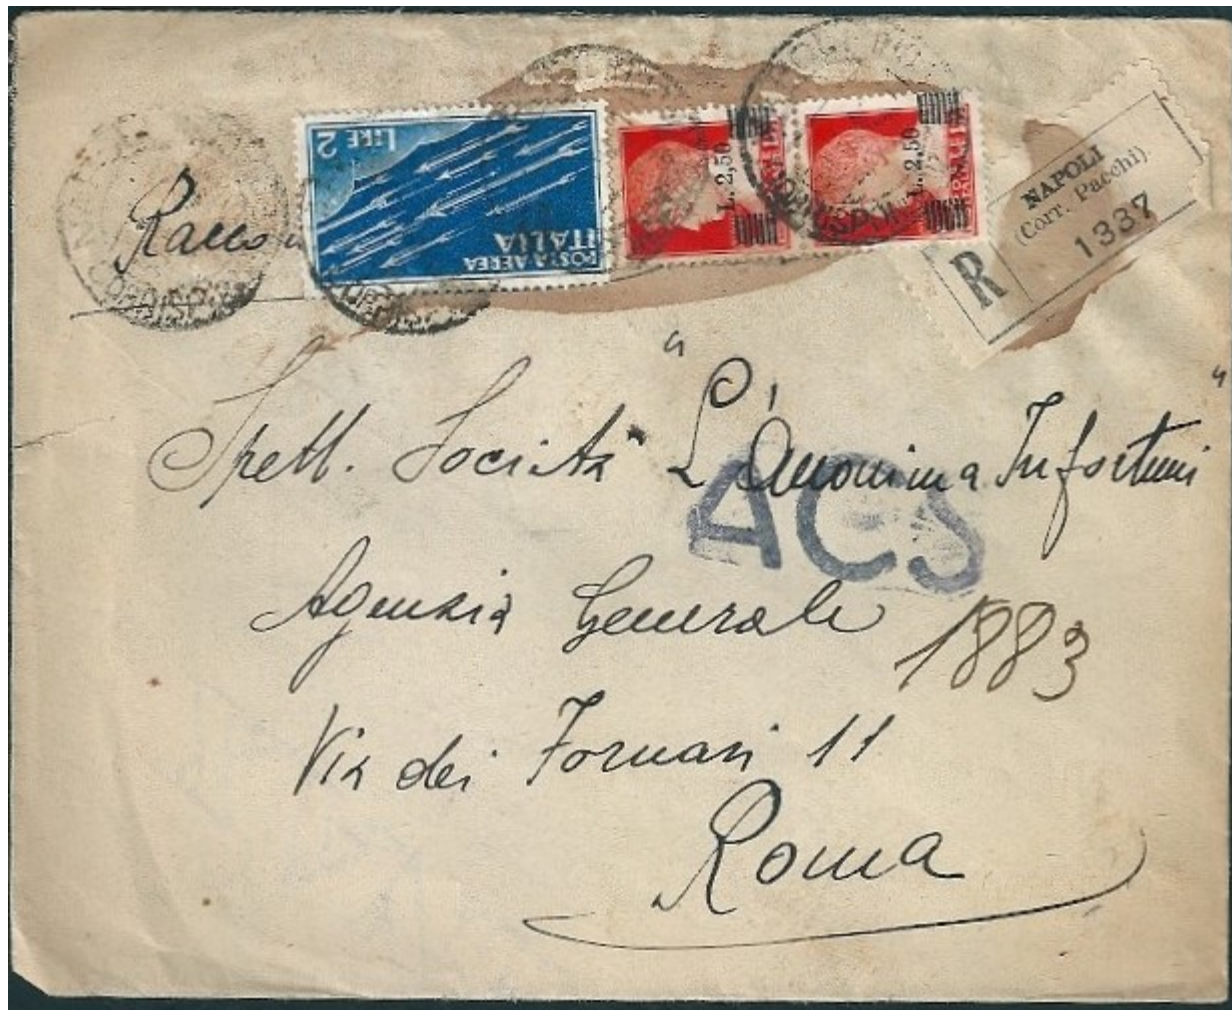 Racco
LIRE 2
POSTA AEREA
ITALIA
L. 2,50
L. 2,50
R
NAPOLI
(Corr. Pacchi)
1337
Spett. Società "L'Anonima Infortuni"
ACS
Agenzia Generale
1883
Via dei Fornari 11
Roma